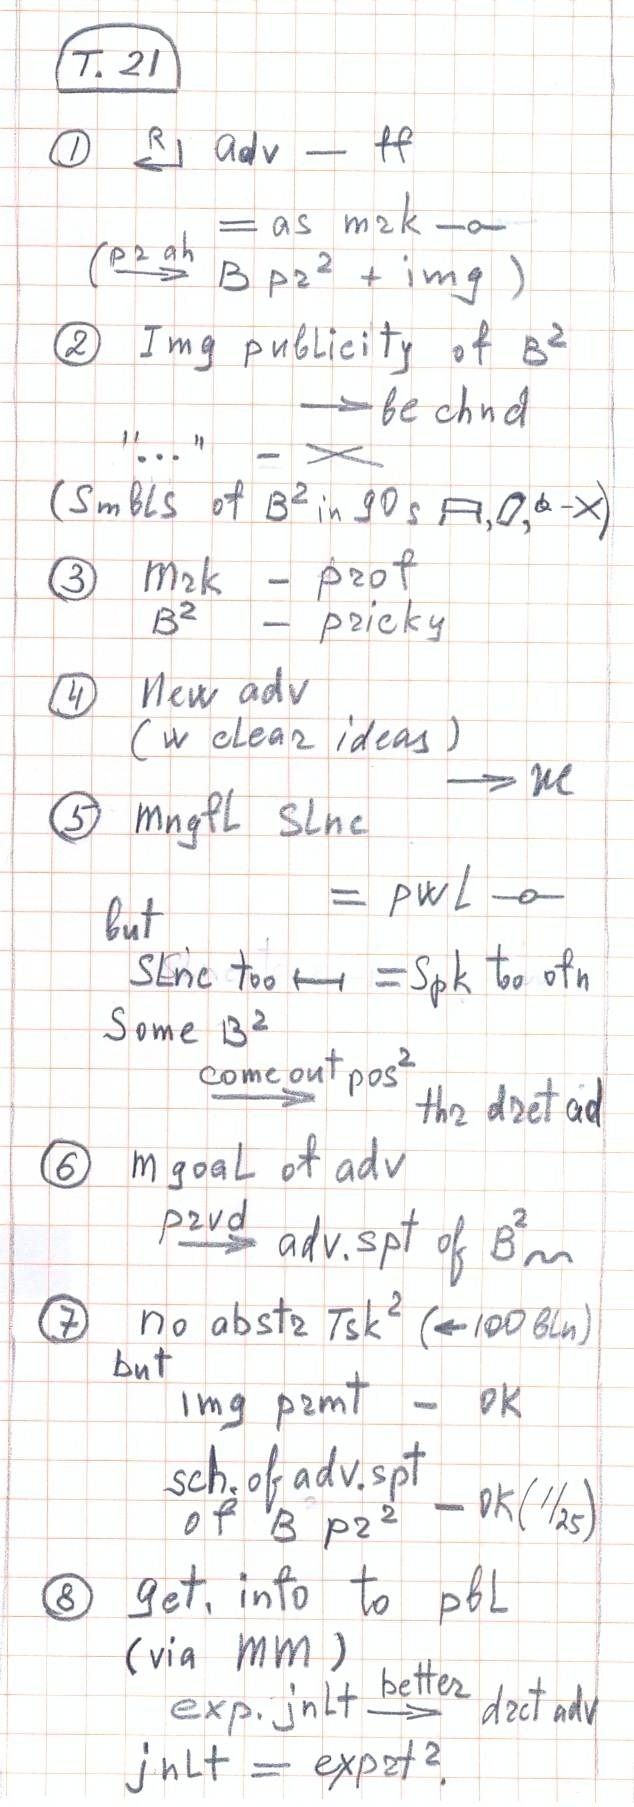 T. 21
① R adv — ff
= as mrk
(pr ah → B pr² + img)
② Img publicity of B²
→ be chnd
"..." –
(SmbLs of B² in 90s
③ mrk – prof
B² – pricky
④ New adv
(w clear ideas)
→
⑤ mngfL SLnc
= pwL
but
SLnc too ⟷ = Spk too ofn
Some B²
come out pos²
→ thr drct ad
⑥ m goaL of adv
prvd → adv. spt of B²
⑦ no abstr Tsk² (← 100 BLn)
but
img prmt – OK
sch. of adv. spt
of B pr² – OK (1/25)
⑧ get. info to pbL
(via MM)
exp. jnLt better → drct adv
jnLt = exprt?